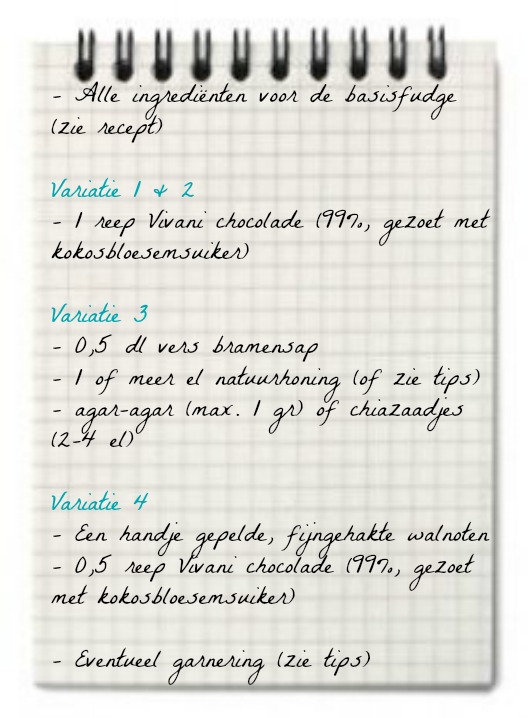 - Alle ingrediënten voor de basisfudge
(zie recept)
Variatie 1 & 2
- 1 reep Vivani chocolade (99%, gezoet met
kokosbloesemsuiker)
Variatie 3
- 0,5 dl vers bramensap
- 1 of meer el natuurhoning (of zie tips)
- agar-agar (max. 1 gr) of chiazaadjes
(2-4 el)
Variatie 4
- Een handje gepelde, fijngehakte walnoten
- 0,5 reep Vivani chocolade (99%, gezoet
met kokosbloesemsuiker)
- Eventueel garnering (zie tips)